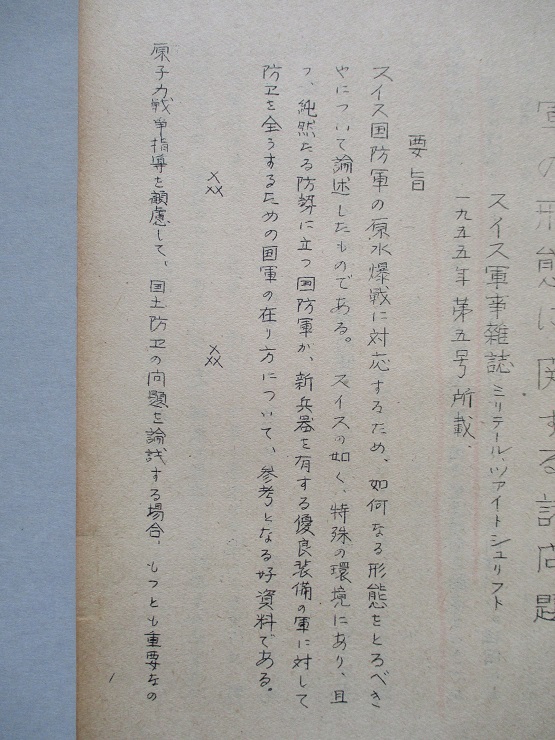 軍の形態に関する諸問題
スイス軍事雑誌 ミリテール.ツァイトシュリフト
一九五五年第五号所載.
要旨
スイス国防軍の原水爆戦に対応するため、如何なる形態をとるべき
やについて論述したものである。 スイスの如く、特殊の環境にあり、且
つ、純然たる防勢に立つ国防軍が、新兵器を有する優良装備の軍に対して
防卫を全うするための国軍の在り方について、参考となる好資料である。
××× ×××
原子力戦争指導を顧慮して、国土防卫の问題を論議する場合、もっとも重要なの